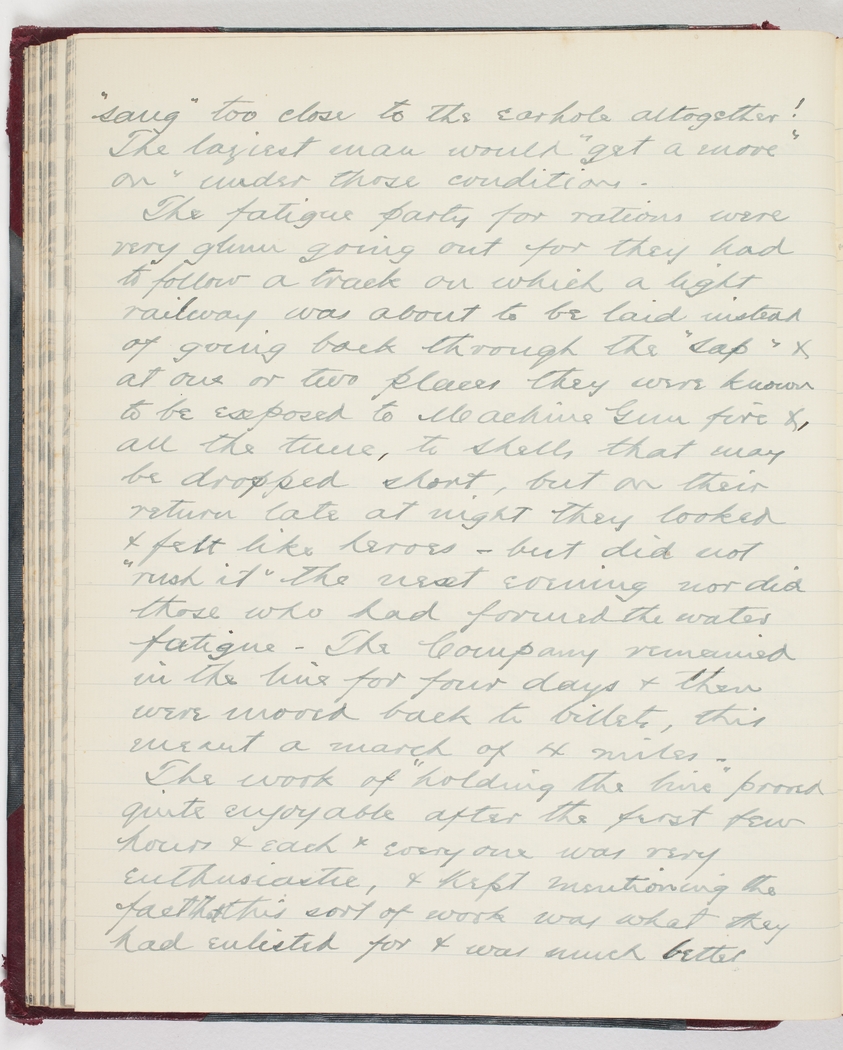 "sang" too close to the earhole altogether!
The laziest man would "get a move
on" under those conditions.
The fatigue party for rations were
very glum going out for they had
to follow a track on which a light
railway was about to be laid instead
of going back through the "sap" &
at one or two places they were known
to be exposed to Machine Gun fire &,
all the time, to shells that may
be dropped short, but on their
return late at night they looked
& felt like heroes - but did not
"rush it" the next evening nor did
those who had formed the water
fatigue - The Company remained
in the line for four days & then
were moved back to billets, this
meant a march of 4 miles -
The work of "holding the line" proved
quite enjoyable after the first few
hours & each & everyone was very
enthusiastic, & kept mentioning the
fact that this sort of work was what they
had enlisted for & was much better